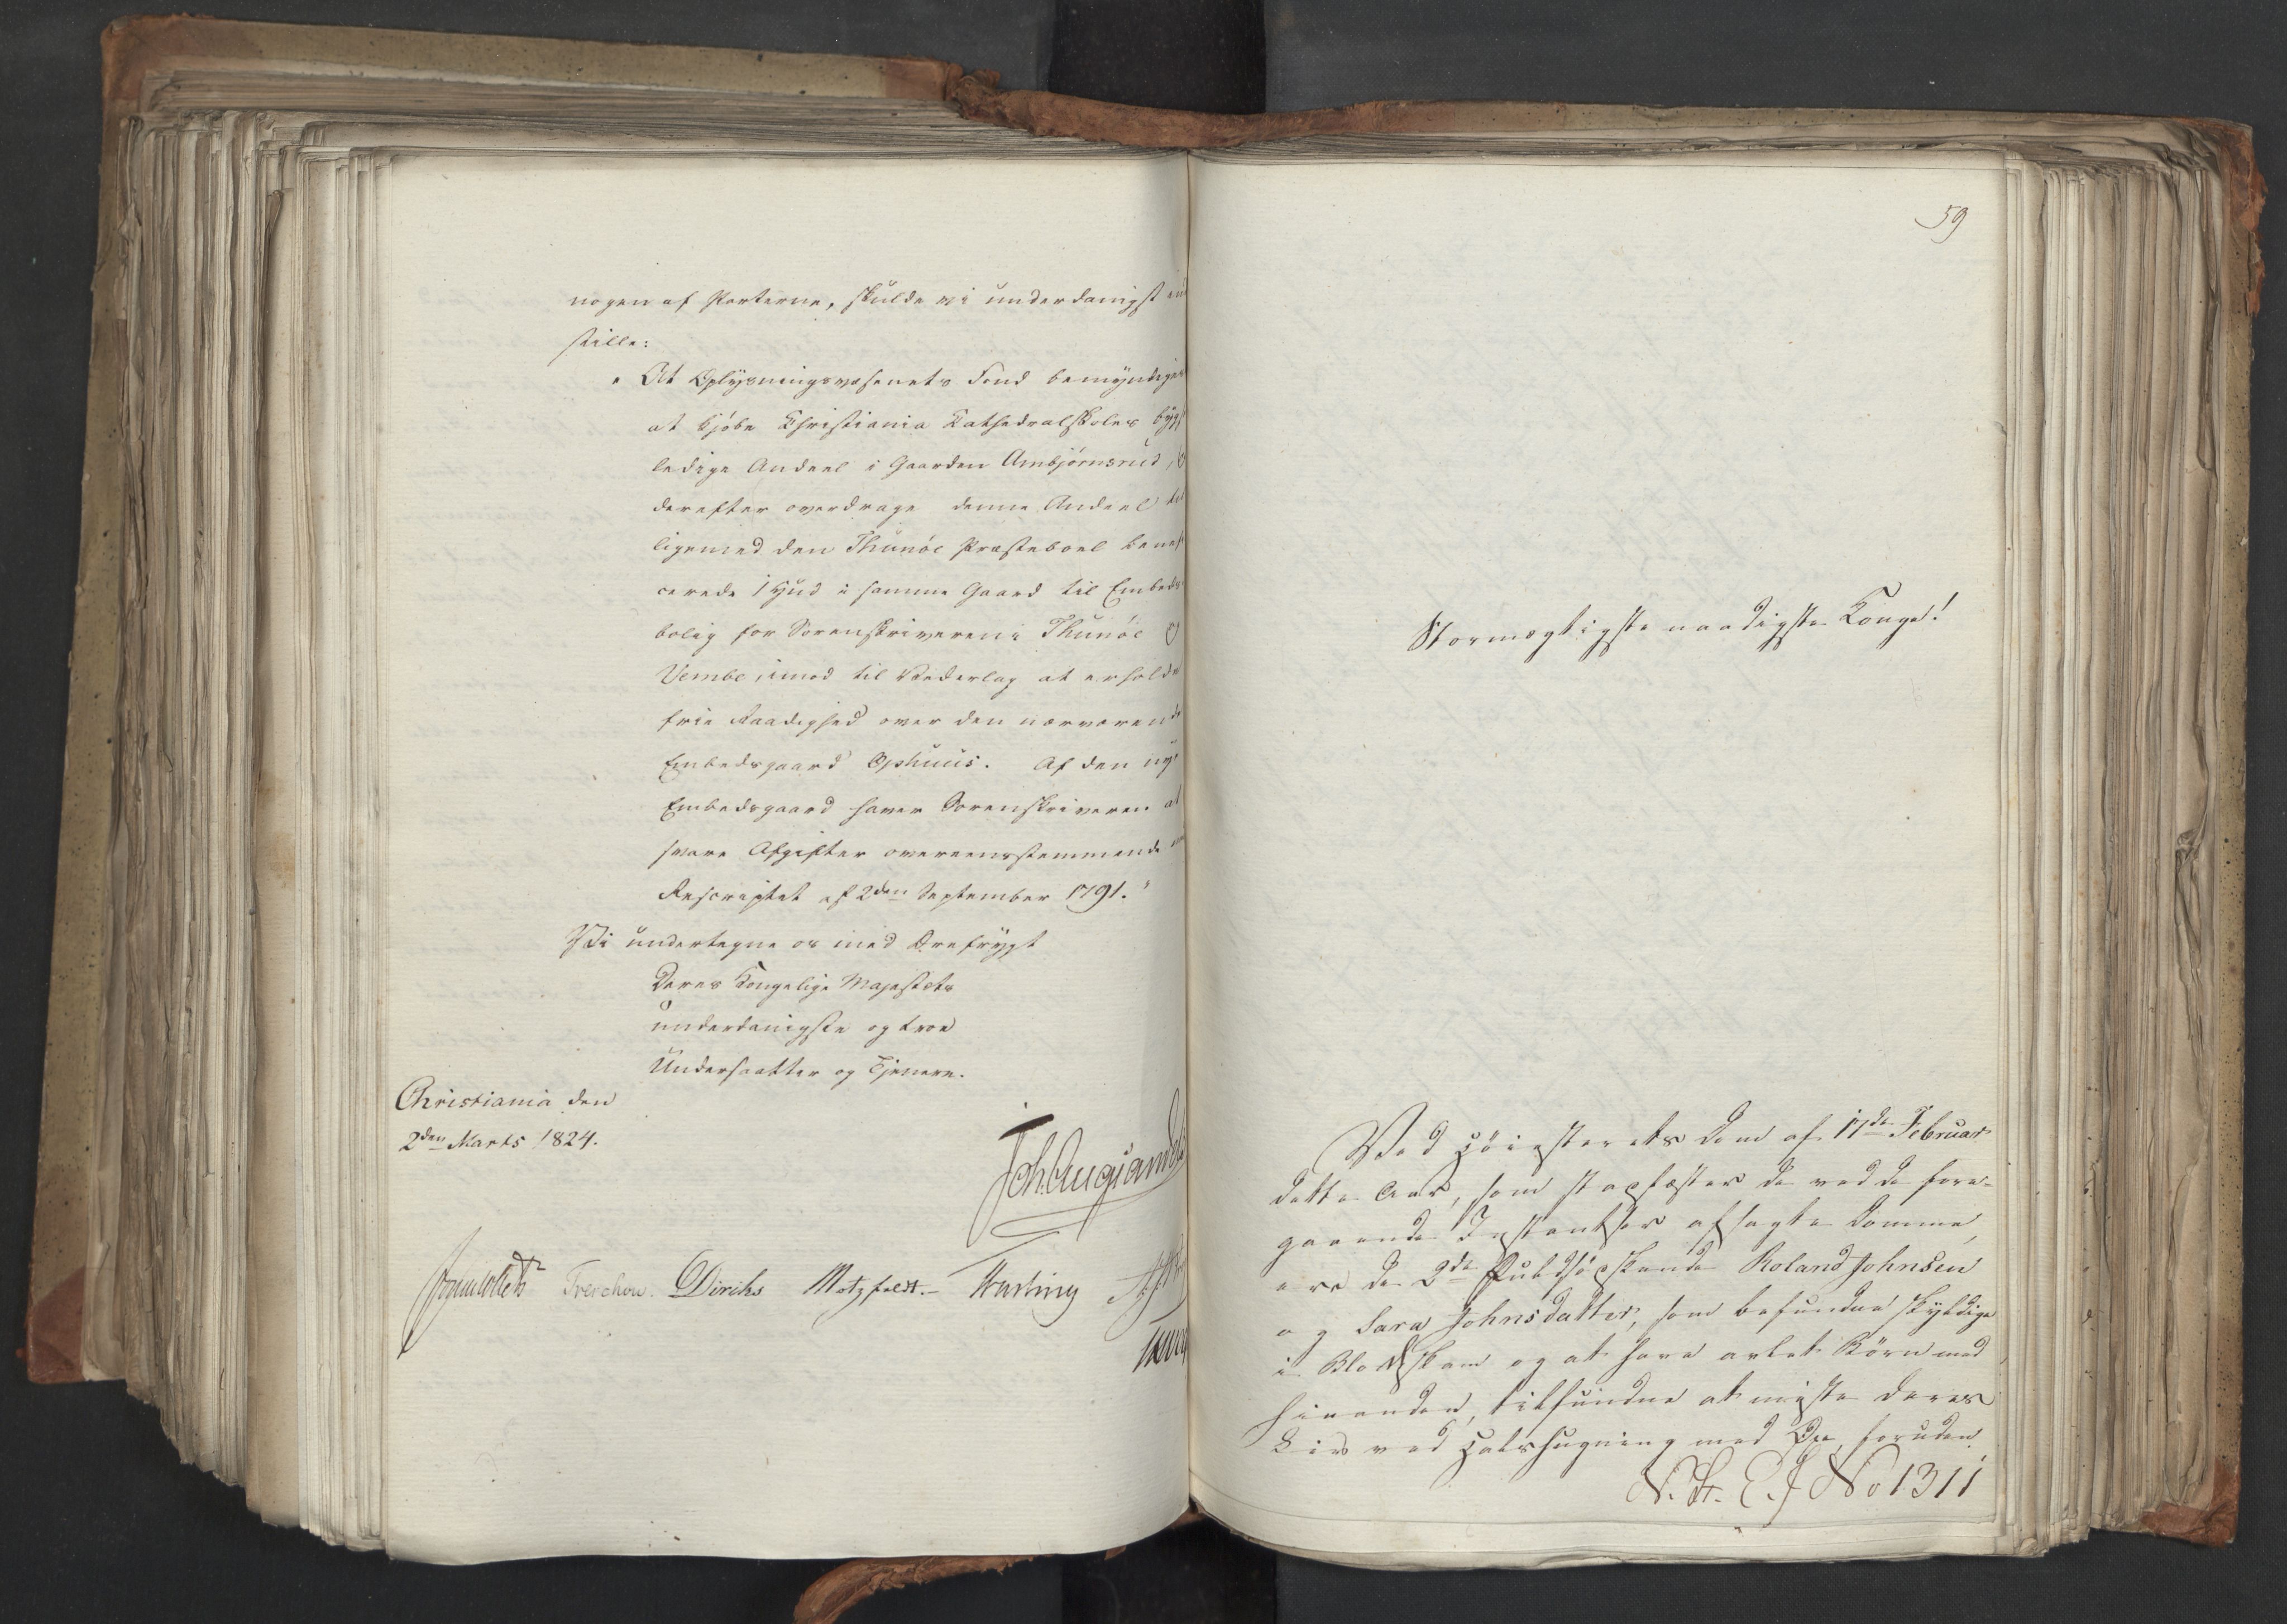 nogen af Parterne, skulde vi underdanigst ind
stille:
"At Oplysningsvæsenets Fond bemyndiges
at kjöbe Christiania Kathedralskoles byg
ledige Andeel i Gaarden Ambjörnsrud,
derefter overdrage denne Andeel til
ligemed den Thunöe Præsteboel benefi
cerede 1 Hud i samme Gaard til Embeds
bolig for Sorenskriveren i Thunöe og
Vembe, imod til Vederlag at erholde
frie Raadighed over den nærværende
Embedsgaard Ophuus. Af den nye
Embedsgaard haver Sorenskriveren at
svare Afgifter overeensstemmende
Rescriptet af 2den September 1791."
Vi undertegne os med Ærefrygt
Deres Kongelige Majestæts
underdanigste og troe
Undersaatter og Tjenere.
Christiania den
2den Marts 1824.
Joh. Aug. Sande
Treschow. Diriks Motzfeldt.-
59
Stormægtigste naadigste Konge!
Ved Höiesterets Dom af 17de Februar
dette Aar, som stadfæster de ved de fore-
gaaende Instantser afsagte Domme,
ere de 2de Fuldsödskende Roland Johnsen
og Sara Johnsdatter, som befundne skyldige
i Blodskam og at have avlet Börn med
hinanden, tilfundne at miste deres
Liv ved Halshugning med Öxe, foruden
N. St. E. J No 1311